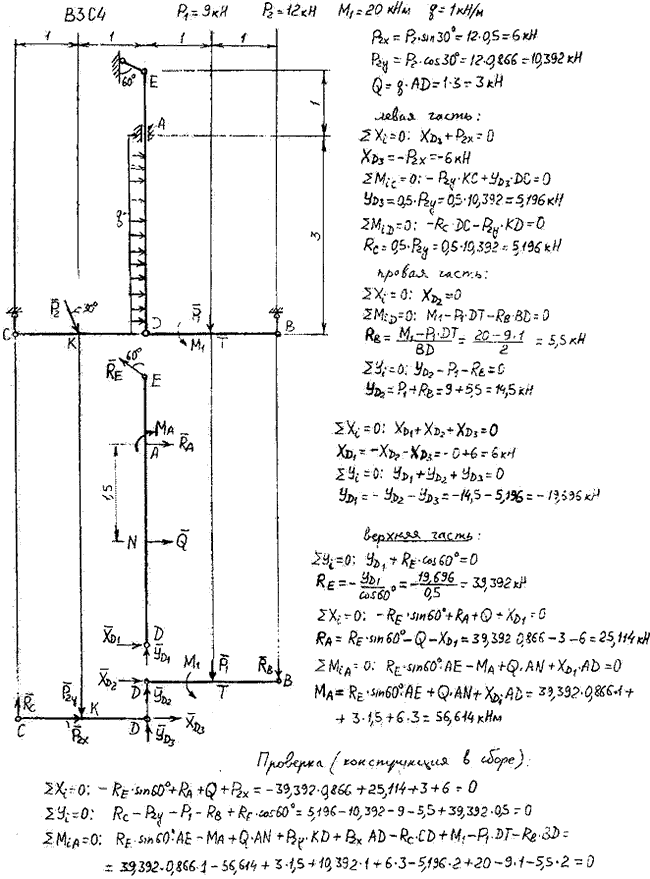 В3С4 P₁=9кН P₂=12кН M₁=20 кНм q=1кН/м
1 1 1 1
P₂ₓ=P₂·sin30°=12·0,5=6кН
P₂y=P₂·cos30°=12·0,866=10,392кН
Q=q·AD=1·3=3кН
60° E
A
1
q
3
левая часть:
ΣXi=0: XD₃+P₂ₓ=0
XD₃=-P₂ₓ=-6кН
ΣMiC=0: -P₂y·KC+YD₃·DC=0
YD₃=0,5·P₂y=0,5·10,392=5,196кН
ΣMiD=0: -RC·DC-P₂y·KD=0
RC=0,5·P₂y=0,5·10,392=5,196кН
правая часть:
ΣXi=0: XD₂=0
ΣMiD=0: M₁-P₁·DT-RB·BD=0
RB=(M₁-P₁·DT)/BD=(20-9·1)/2=5,5кН
ΣYi=0: YD₂-P₁-RB=0
YD₂=P₁+RB=9+5,5=14,5кН
P̄₂ 30° D P̄₁
C K M₁ T B
R̄E 60° E
MA
A R̄A
1,5
N Q̄
ΣXi=0: XD₁+XD₂+XD₃=0
XD₁=-XD₂-XD₃=-0+6=6кН
ΣYi=0: YD₁+YD₂+YD₃=0
YD₁=-YD₂-YD₃=-14,5-5,196=-19,696кН
верхняя часть:
ΣYi=0: YD₁+RE·cos60°=0
RE=-YD₁/cos60°=-(-19,696)/0,5=39,392кН
ΣXi=0: -RE·sin60°+RA+Q+XD₁=0
RA=RE·sin60°-Q-XD₁=39,392·0,866-3-6=25,114кН
ΣMiA=0: RE·sin60°·AE-MA+Q·AN+XD₁·AD=0
MA=RE·sin60°·AE+Q·AN+XD₁·AD=39,392·0,866·1+
+3·1,5+6·3=56,614кНм
X̄D₁ D ȲD₁
X̄D₂ D ȲD₂ M₁ P̄₁ T R̄B B
R̄C P̄₂y K
C P̄₂ₓ D ȲD₃ X̄D₃
Проверка (конструкция в сборе):
ΣXi=0: -RE·sin60°+RA+Q+P₂ₓ=-39,392·0,866+25,114+3+6=0
ΣYi=0: RC-P₂y-P₁-RB+RE·cos60°=5,196-10,392-9-5,5+39,392·0,5=0
ΣMiA=0: RE·sin60°·AE-MA+Q·AN+P₂y·KD+P₂ₓ·AD-RC·CD+M₁-P₁·DT-RB·BD=
=39,392·0,866·1-56,614+3·1,5+10,392·1+6·3-5,196·2+20-9·1-5,5·2=0